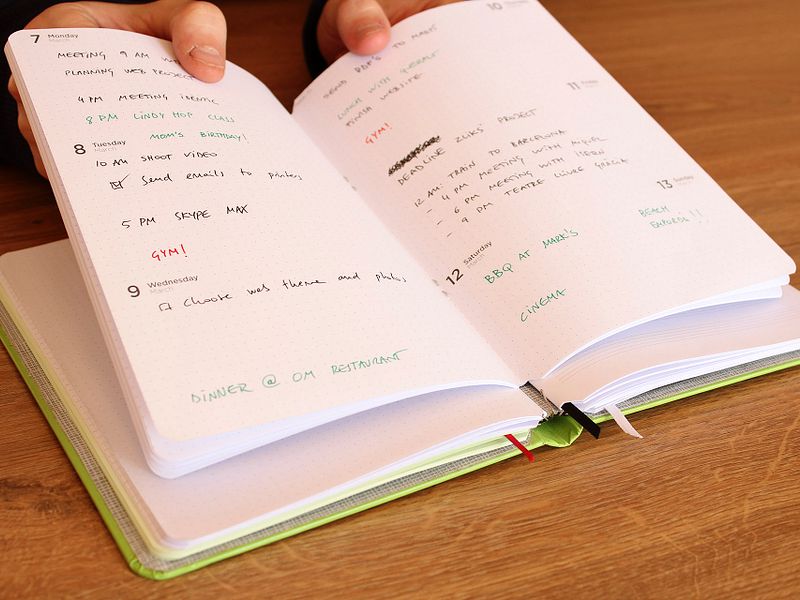 7 Monday
March
MEETING 9 AM
PLANNING WEB PROJECT
4 PM MEETING IDENTIC
8 PM LINDY HOP CLASS
MOM'S BIRTHDAY!
8 Tuesday
March
10 AM SHOOT VIDEO
Send emails to printers
5 PM SKYPE MAX
GYM!
9 Wednesday
March
Choose web theme and photos
DINNER @ OM RESTAURANT
10
SEND PDF'S TO MARK
LUNCH WITH
FINISH WEBSITE
GYM!
11 Friday
DEADLINE 2LIKS' PROJECT
12 AM: TRAIN TO BARCELONA
- 4 PM MEETING WITH MIQUEL
- 6 PM MEETING WITH
- 9 PM TEATRE LLIURE GRÀCIA
12 Saturday
March
BBQ AT MARK'S
CINEMA
13 Sunday
March
BEACH
!!